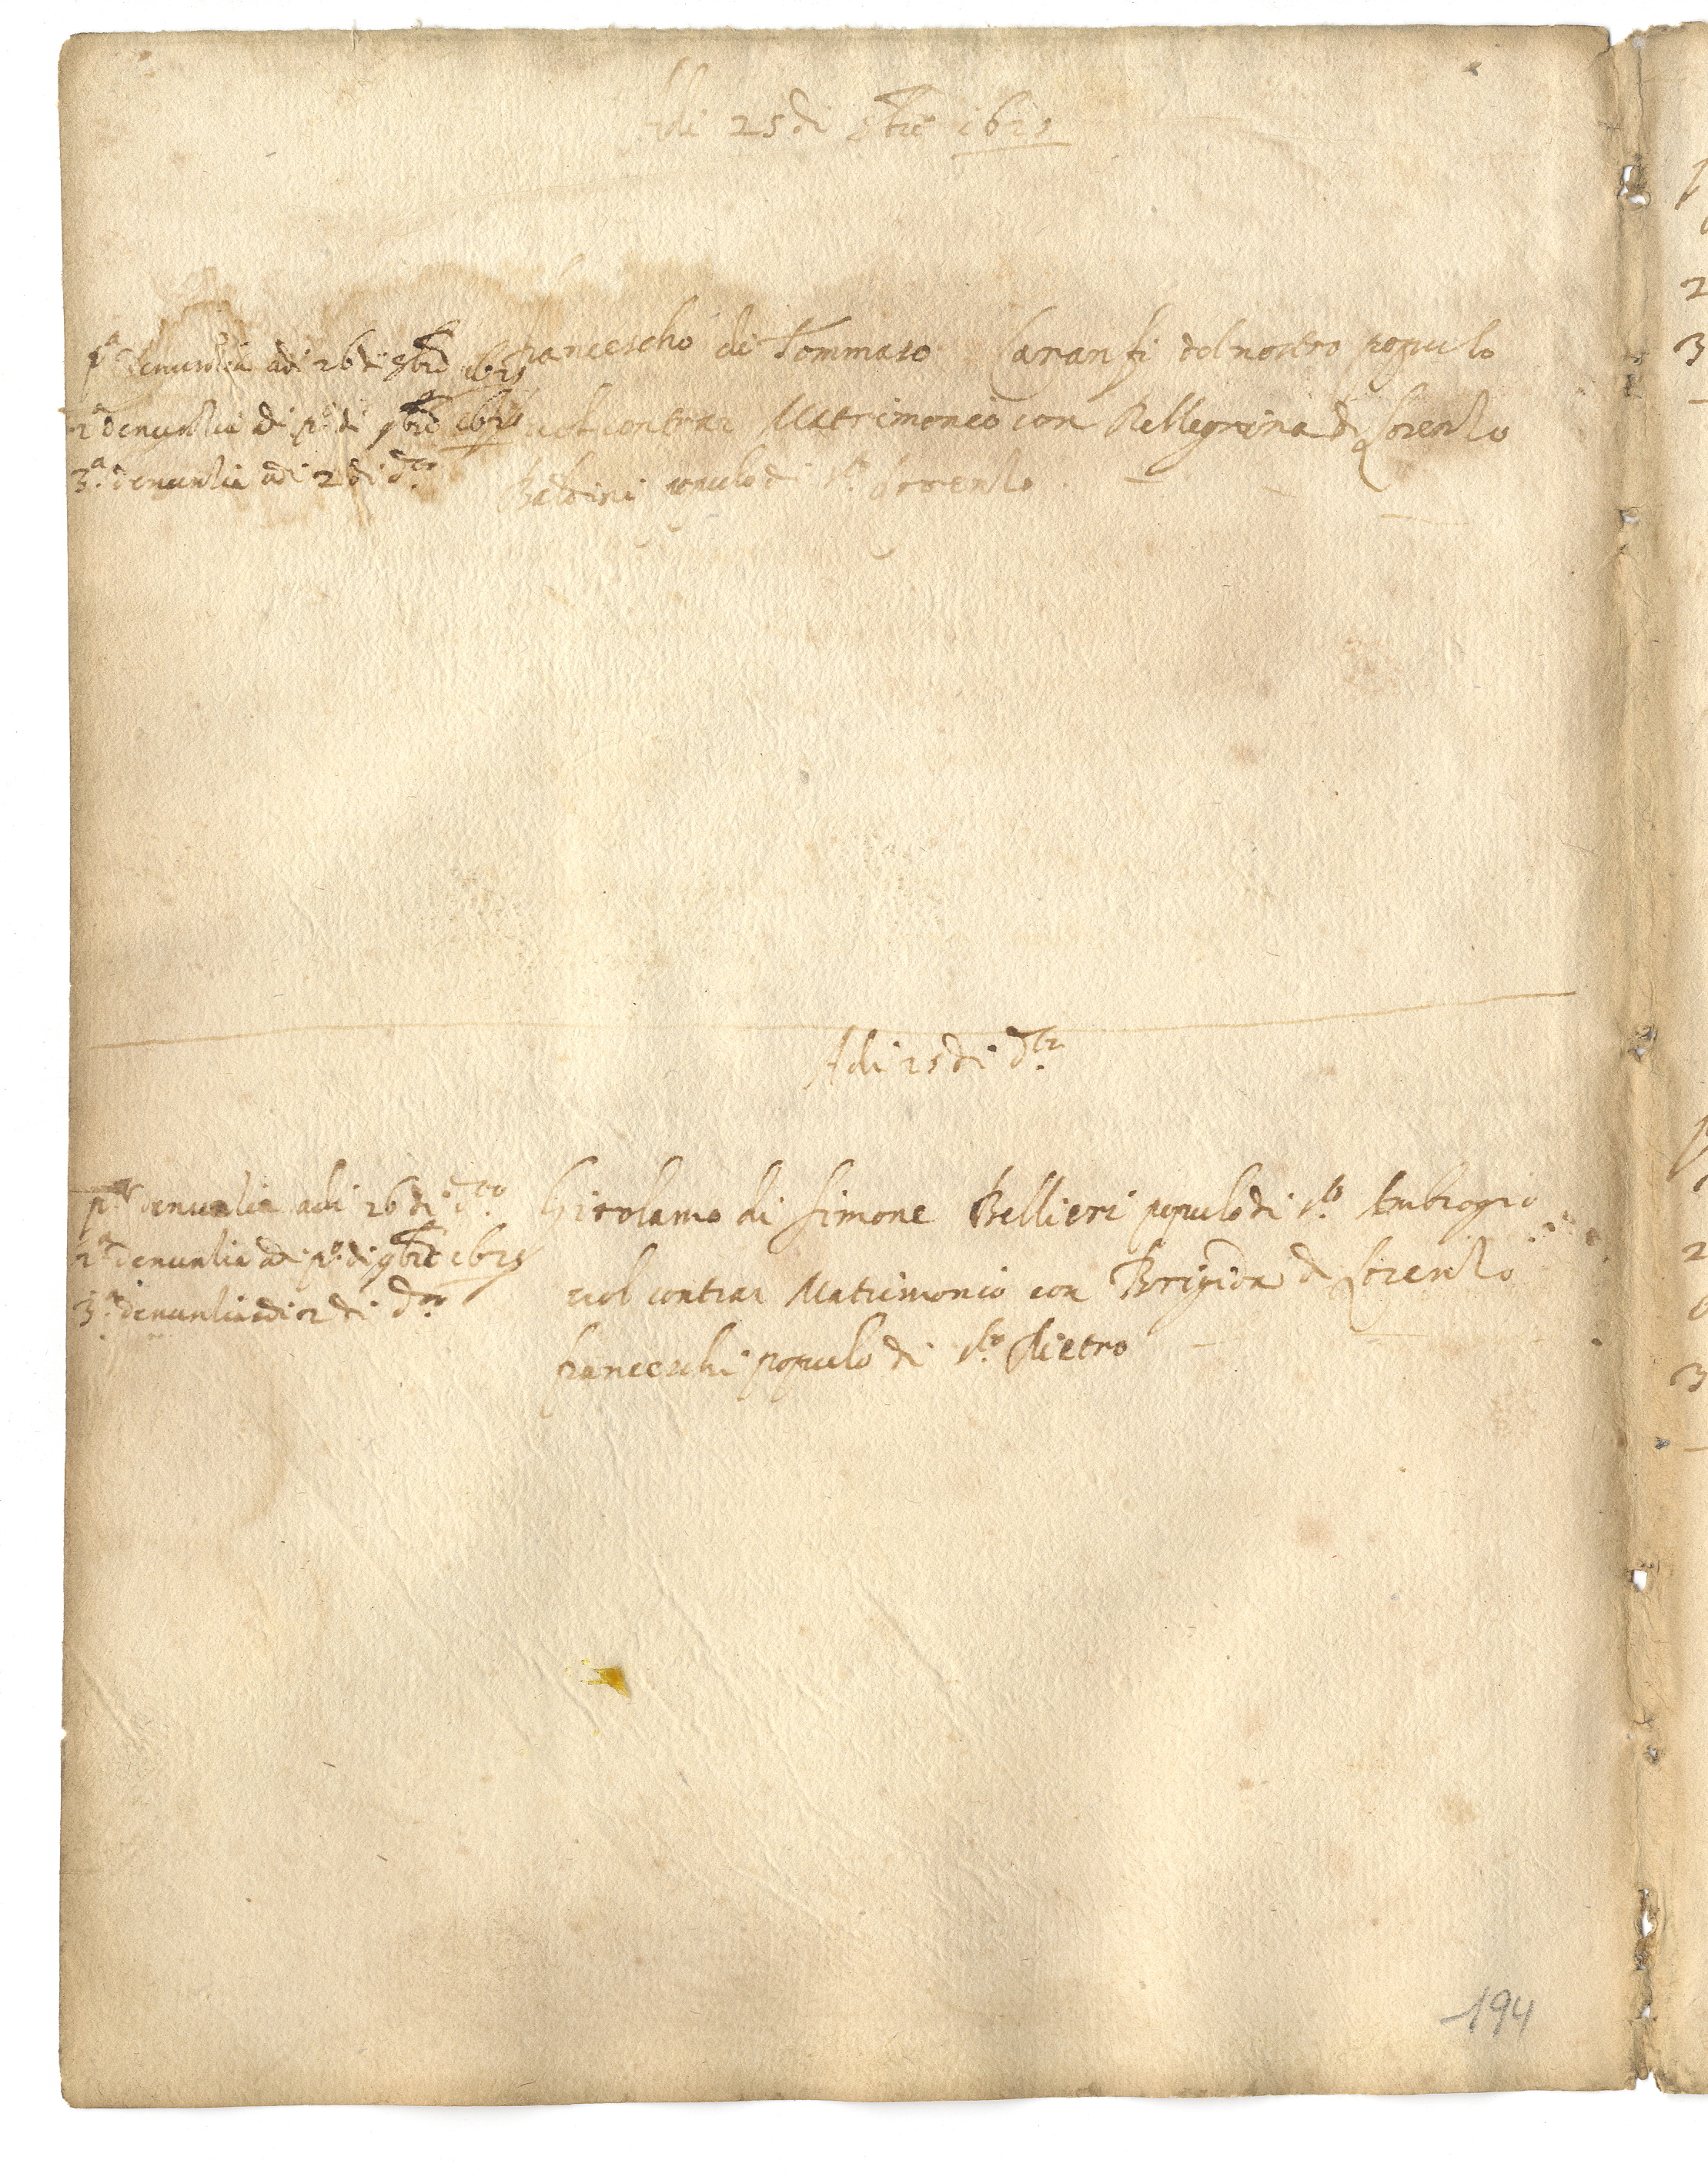 Adi 25 di 8bre 1625
pª denuntia adi 26 di 8bre 1625
2ª denuntia adi pº di 9bre 1625
3ª denuntia adi 2 di dto
francescho di Tommaso Caranti del nostro populo
vol contrar Matrimonio con Pellegrina di Lorenzo
Baldini populo di Sº Lorenzo
Adi 25 di dto
pª denuntia adi 26 di dto
2ª denuntia adi pº di 9bre 1625
3ª denuntia adi 2 di dto
Girolamo di Simone Bellieri populo di Sto Ambrogio
vol contrar Matrimonio con Brigida di Lorenzo
franceschi populo di Sto Pietro
194